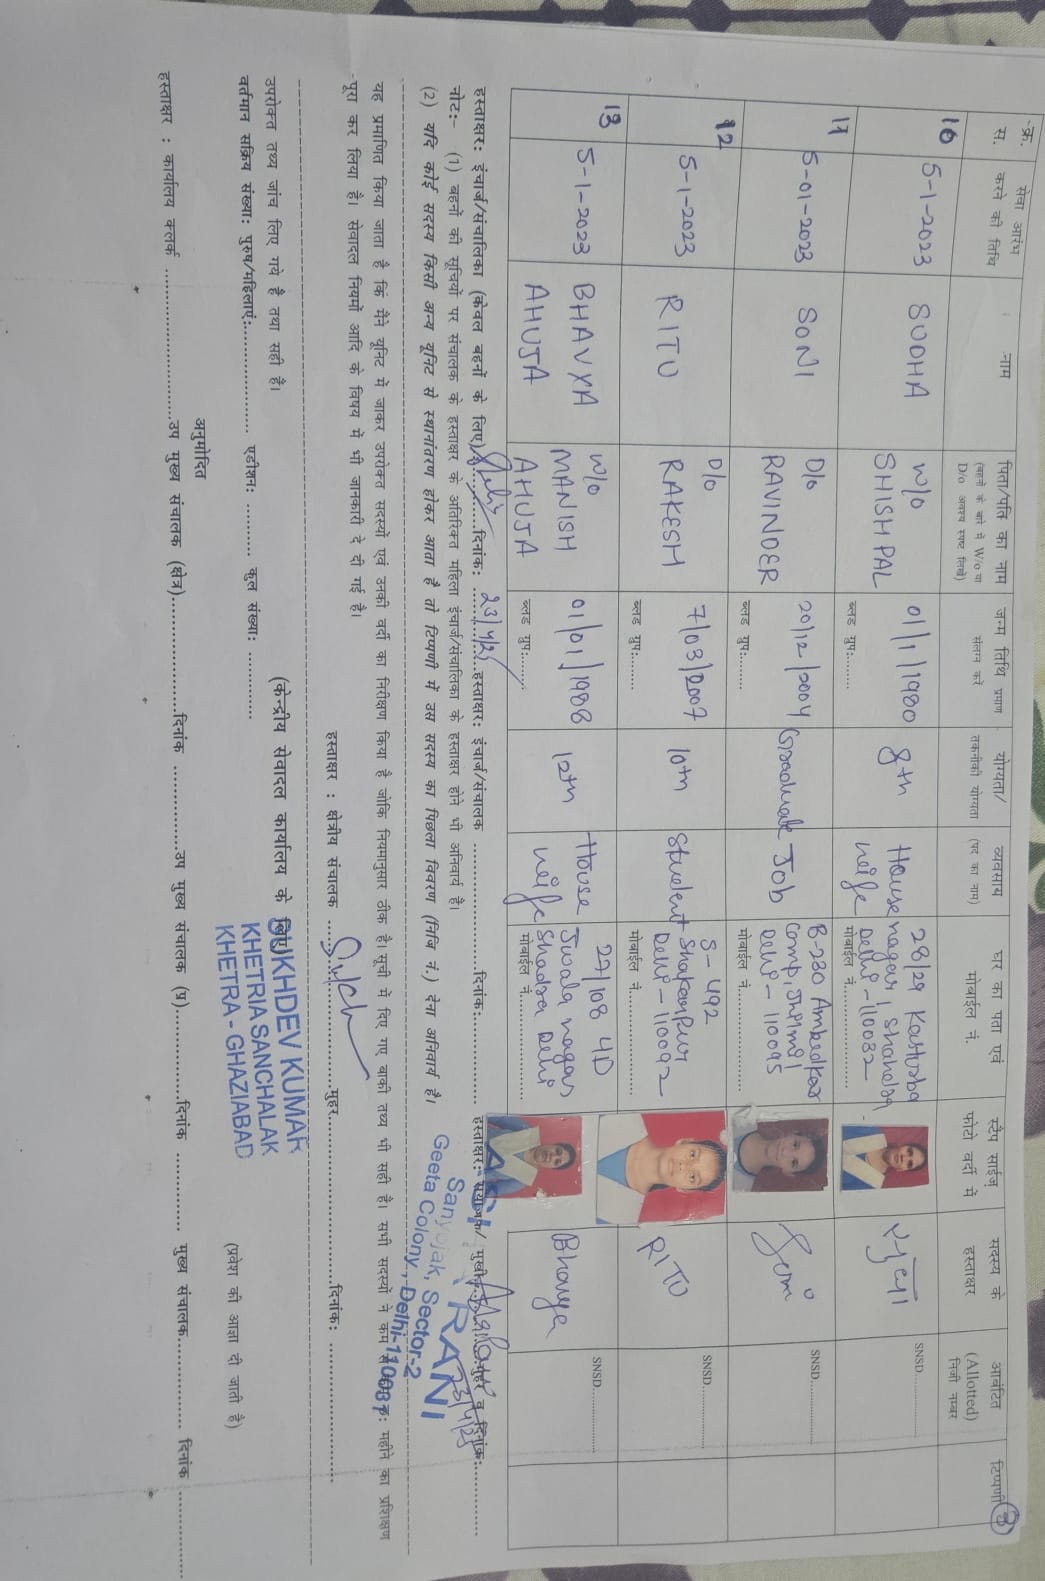 3
क्र. स.
सेवा आरंभ करने की तिथि
नाम
पिता/पति का नाम
(बहनों के बारे में W/o या D/o अवश्य स्पष्ट लिखें)
जन्म तिथि प्रमाण संलग्न करे
योग्यता/ तकनीकी योग्यता
व्यवसाय (पद का नाम)
घर का पता एवं मोबाईल नं.
स्टैंप साईज़ फोटो वर्दी में
सदस्य के हस्ताक्षर
आबंटित (Allotted) निजी नम्बर
टिप्पणी
10
5-1-2023
SUDHA
W/o
SHISHPAL
01/1/1980
ब्लड ग्रुप:.......
8th
House
wife
28/29 Kasturba
nagar, Shahdra
Delhi-110032
मोबाईल नं...................
SNSD..............
11
5-01-2023
SONI
D/o
RAVINDER
20/12/2004
ब्लड ग्रुप:.......
Graduate
Job
B-280 Ambedkar
Camp, Jhilmil
Delhi-110095
मोबाईल नं...................
Soni
SNSD..............
12
5-1-2023
RITU
D/o
RAKESH
7/03/2007
ब्लड ग्रुप:.......
10th
Student
S-492
Shakarpur
Delhi-110092
मोबाईल नं...................
RITU
SNSD..............
13
5-1-2023
BHAVYA
AHUJA
W/o
MANISH
AHUJA
01/01/1988
ब्लड ग्रुप:.......
12th
House
wife
27/108 4D
Jwala nagar
Shadra Delhi
मोबाईल नं...................
Bhavya
SNSD..............
हस्ताक्षर: इंचार्ज/संचालिका (केवल बहनों के लिए)..............दिनांक: 23/4/25 हस्ताक्षर: इंचार्ज/संचालक ......................दिनांक:.............. हस्ताक्षर: संयोजक/ मुखी...........मुहर व दिनांक:..............
RANI
23/4/25
Sanyojak, Sector-2
Geeta Colony, Delhi-110031
नोट:- (1) बहनों की सूचियों पर संचालक के हस्ताक्षर के अतिरिक्त महिला इंचार्ज/संचालिका के हस्ताक्षर होने भी अनिवार्य है।
(2) यदि कोई सदस्य किसी अन्य यूनिट से स्थानांतरण होकर आता है तो टिप्पणी में उस सदस्य का पिछला विवरण (निजि नं.) देना अनिवार्य है।
यह प्रमाणित किया जाता है कि मैंने यूनिट में जाकर उपरोक्त सदस्यों एवं उनकी वर्दी का निरीक्षण किया है जोकि नियमानुसार ठीक है। सूची में दिए गए बाकी तथ्य भी सही है। सभी सदस्यों ने कम से कम छः महीने का प्रशिक्षण
पूरा कर लिया है। सेवादल नियमों आदि के विषय में भी जानकारी दे दी गई है।
हस्ताक्षर : क्षेत्रीय संचालक ......................मुहर......................दिनांक: ......................
SUKHDEV KUMAR
KHETRIA SANCHALAK
KHETRA - GHAZIABAD
(केन्द्रीय सेवादल कार्यालय के लिए)
उपरोक्त तथ्य जांच लिए गये है तथा सही है।
वर्तमान सक्रिय संख्या: पुरुष/महिलाएं:................ एडीशन: .......... कुल संख्या: ............
(प्रवेश की आज्ञा दी जाती है)
अनुमोदित
हस्ताक्षर : कार्यालय क्लर्क ......................उप मुख्य संचालक (क्षेत्र)......................दिनांक ..............उप मुख्य संचालक (प्र)................दिनांक .............. मुख्य संचालक................ दिनांक ..............